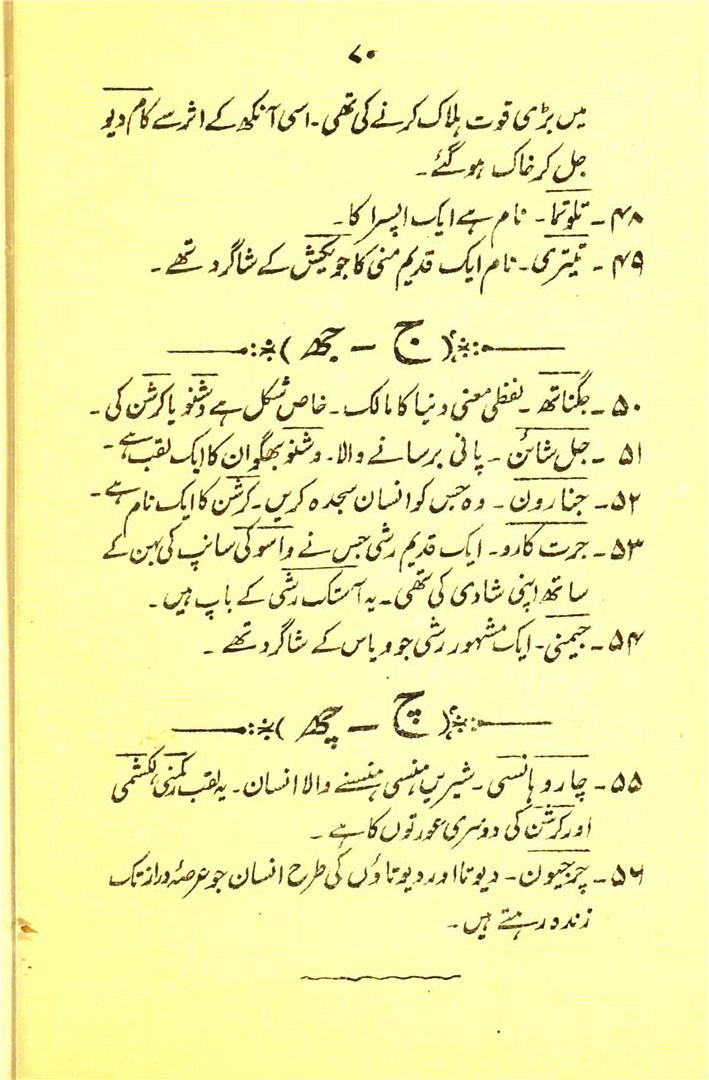 ۷۰
میں بڑی قوت ہلاک کرنے کی تھی۔ اسی آنکھ کے اثر سے کام دیو
جل کر خاک ہو گئے۔
۴۸۔ تلوتما۔ نام ہے ایک اپسرا کا۔
۴۹۔ تیتری۔ نام ایک قدیم منی کا جو یکیش کے شاگرد تھے۔
(ج – جھ)
۵۰۔ جگناتھ۔ لفظی معنی دنیا کا مالک۔ خاص شکل ہے وشنو یا کرشن کی۔
۵۱۔ جل شائن۔ پانی برسانے والا۔ وشنو بھگوان کا ایک لقب ہے۔
۵۲۔ جنارون۔ وہ جس کو انسان سجدہ کریں۔ کرشن کا ایک نام ہے۔
۵۳۔ جرت کارو۔ ایک قدیم رشی جس نے واسوکی سانپ کی بہن کے
ساتھ اپنی شادی کی تھی۔ یہ آستک رشی کے باپ ہیں۔
۵۴۔ جیمنی۔ ایک مشہور رشی جو ویاس کے شاگرد تھے۔
(چ – چھ)
۵۵۔ چارو ہانسی۔ شیریں ہنسی ہنسنے والا انسان۔ یہ لقب رکمنی لکشمی
اور کرشن کی دوسری عورتوں کا ہے۔
۵۶۔ چرجیون۔ دیوتا اور دیوتاؤں کی طرح انسان جو عرصۂ دراز تک
زندہ رہتے ہیں۔